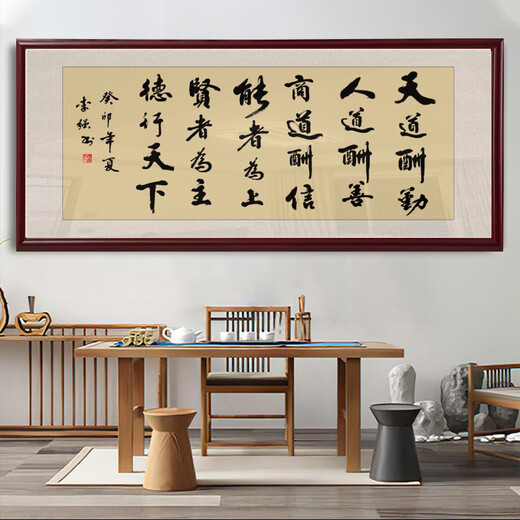 天道酬勤
人道酬善
商道酬信
能者為上
賢者為主
德行天下
癸卯年夏
李強书